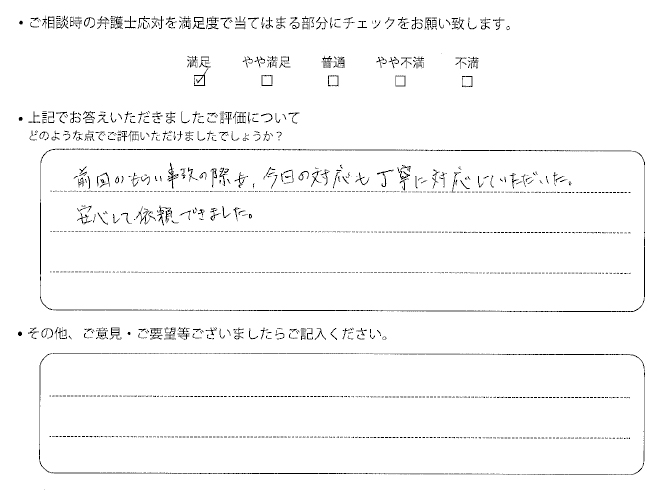 ・ご相談時の弁護士応対を満足度で当てはまる部分にチェックをお願い致します。
満足 やや満足 普通 やや不満 不満
☑ □ □ □ □
・上記でお答えいただきましたご評価について
どのような点でご評価いただけましたでしょうか？
前回のもらい事故の際も、今日の対応も丁寧に対応していただいた。
安心して依頼できました。
・その他、ご意見・ご要望等ございましたらご記入ください。